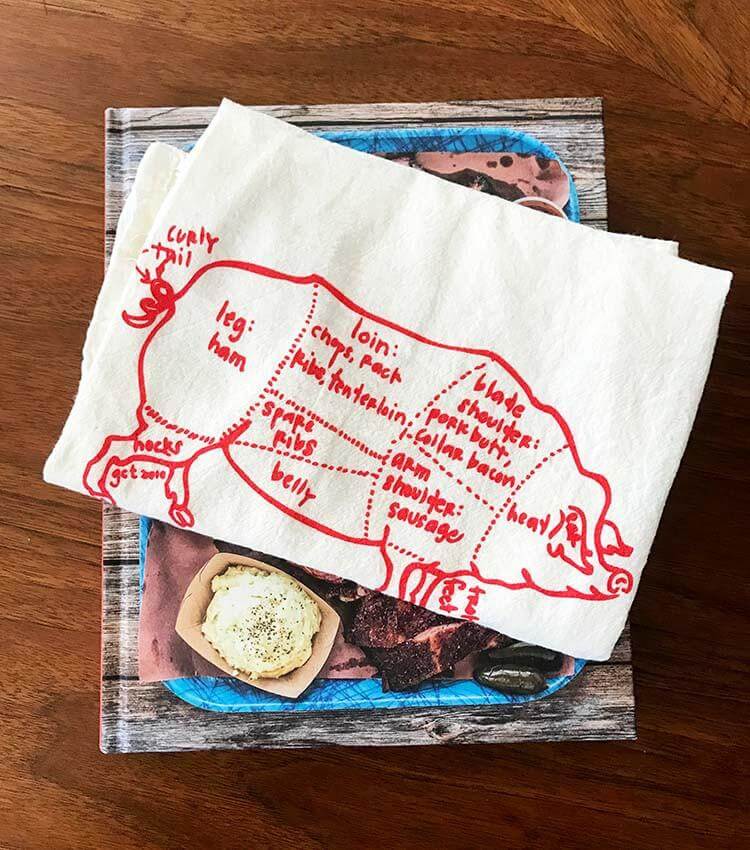 curly
tail
leg:
ham
loin:
chops, rack
ribs, tenterloin
blade
shoulder:
pork butt,
collar bacon
spare
ribs
belly
arm
shoulder:
sausage
head
hocks
gct2010
feet